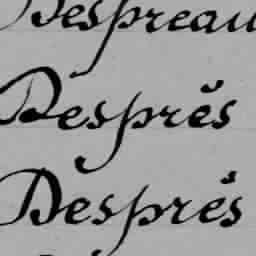 Despreau
Després
Després